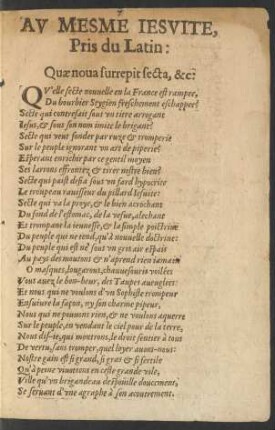 AV MESME IESVITE,
Pris du Latin:
Quæ noua surrepit secta, &c?
QV'elle secte nouuelle en la France est rampee,
Du bourbier Stygien freschement eschappee?
Secte qui contrefait sous vn tiltre arrogant
Iesus, & sous son nom imite le brigant?
Secte qui veut fonder par ruze & tromperie
Sur le peuple ignorant vn art de piperie?
Esperant enrichir par ce gentil moyen
Ses larrons effrontez, & tirer nostre bien?
Secte qui paist desia sous vn fard hypocrite
Le troupeau rauisseur du pillard Iesuite?
Secte qui va la proye, & le bien acrochant
Du fond de l'estomac, de la
Et trompant la ieunesse, & la simple poictrine
Du peuple qui ne sent, qu'à nouuelle doctrine:
Du peuple qui est né sous vn gros air espais
Au pays des moutons & n'aprend rien iamais
O masques, lougarous, chauuesouris voilées
Vous auez le bon-heur, des Taupes aueuglées:
Et nous qui ne voulons d'vn Sophiste trompeur
Ensuiure la façon, ny son charme pipeur,
Nous qui ne pouuons rien, & ne voulons aquerre
Sur le peuple, en vendant le ciel pour de la terre,
Nous dis-ie, qui montrons, le droit sentier à tous
De vertu, sans tromper, quel loyer auons-nous?
Nostre gain est si grand, si gras & si fertile
Qu'à peine viuottons en ceste grande ville,
Ville qu'vn brigandeau despouille doucement,
Se seruant d'vne agraphe à son acoutrement.